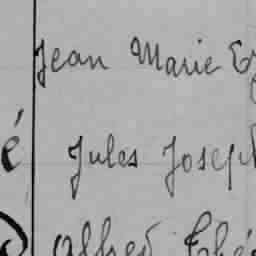 Jean Marie
é Jules Joseph
Alfred